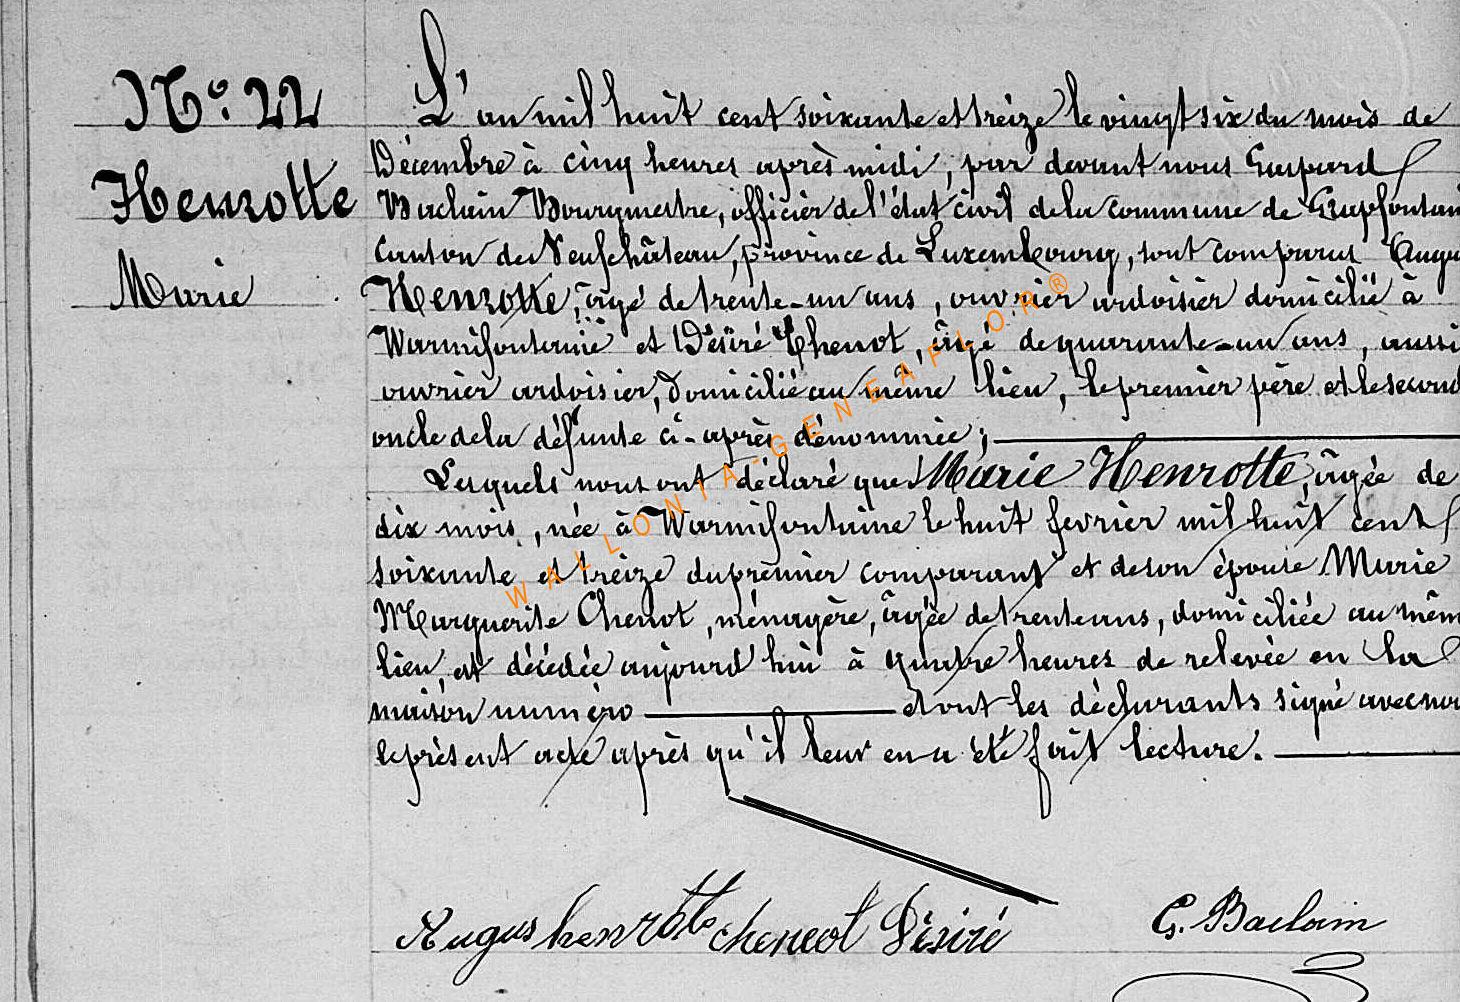 N° 22
Henrotte
Marie
L'an mil huit cent soixante et treize le vingt six du mois de
Décembre à cinq heures après midi, par devant nous Gaspard
Baclain Bourgmestre, officier de l'état civil de la commune de Grapfontain
Canton de Neufchâteau, province de Luxembourg, sont comparus Augu
Henrotte, âgé de trente-un ans, ouvrier ardoisier domicilié à
Warmifontaine et Désiré Chenot, âgé de quarante-un ans, aussi
ouvrier ardoisier, domicilié au même lieu, le premier père et le second
oncle de la défunte ci-après dénommée;
Lesquels nous ont déclaré que Marie Henrotte, âgée de
dix mois, née à Warmifontaine le huit fevrier mil huit cent
soixante et treize du prémier comparant et de son épouse Marie
Marguerite Chenot, ménagère, âgée de trente ans, domiciliée au mêm
lieu, est décédée aujourd'hui à quatre heures de relevée en la
maison numéro et ont les déclarants signé avec nou
le présent acte après qu'il leur en a été fait lecture.
Augus henrotte chenot Désiré G. Baclain
WALLONIA-GENEAFLOR®